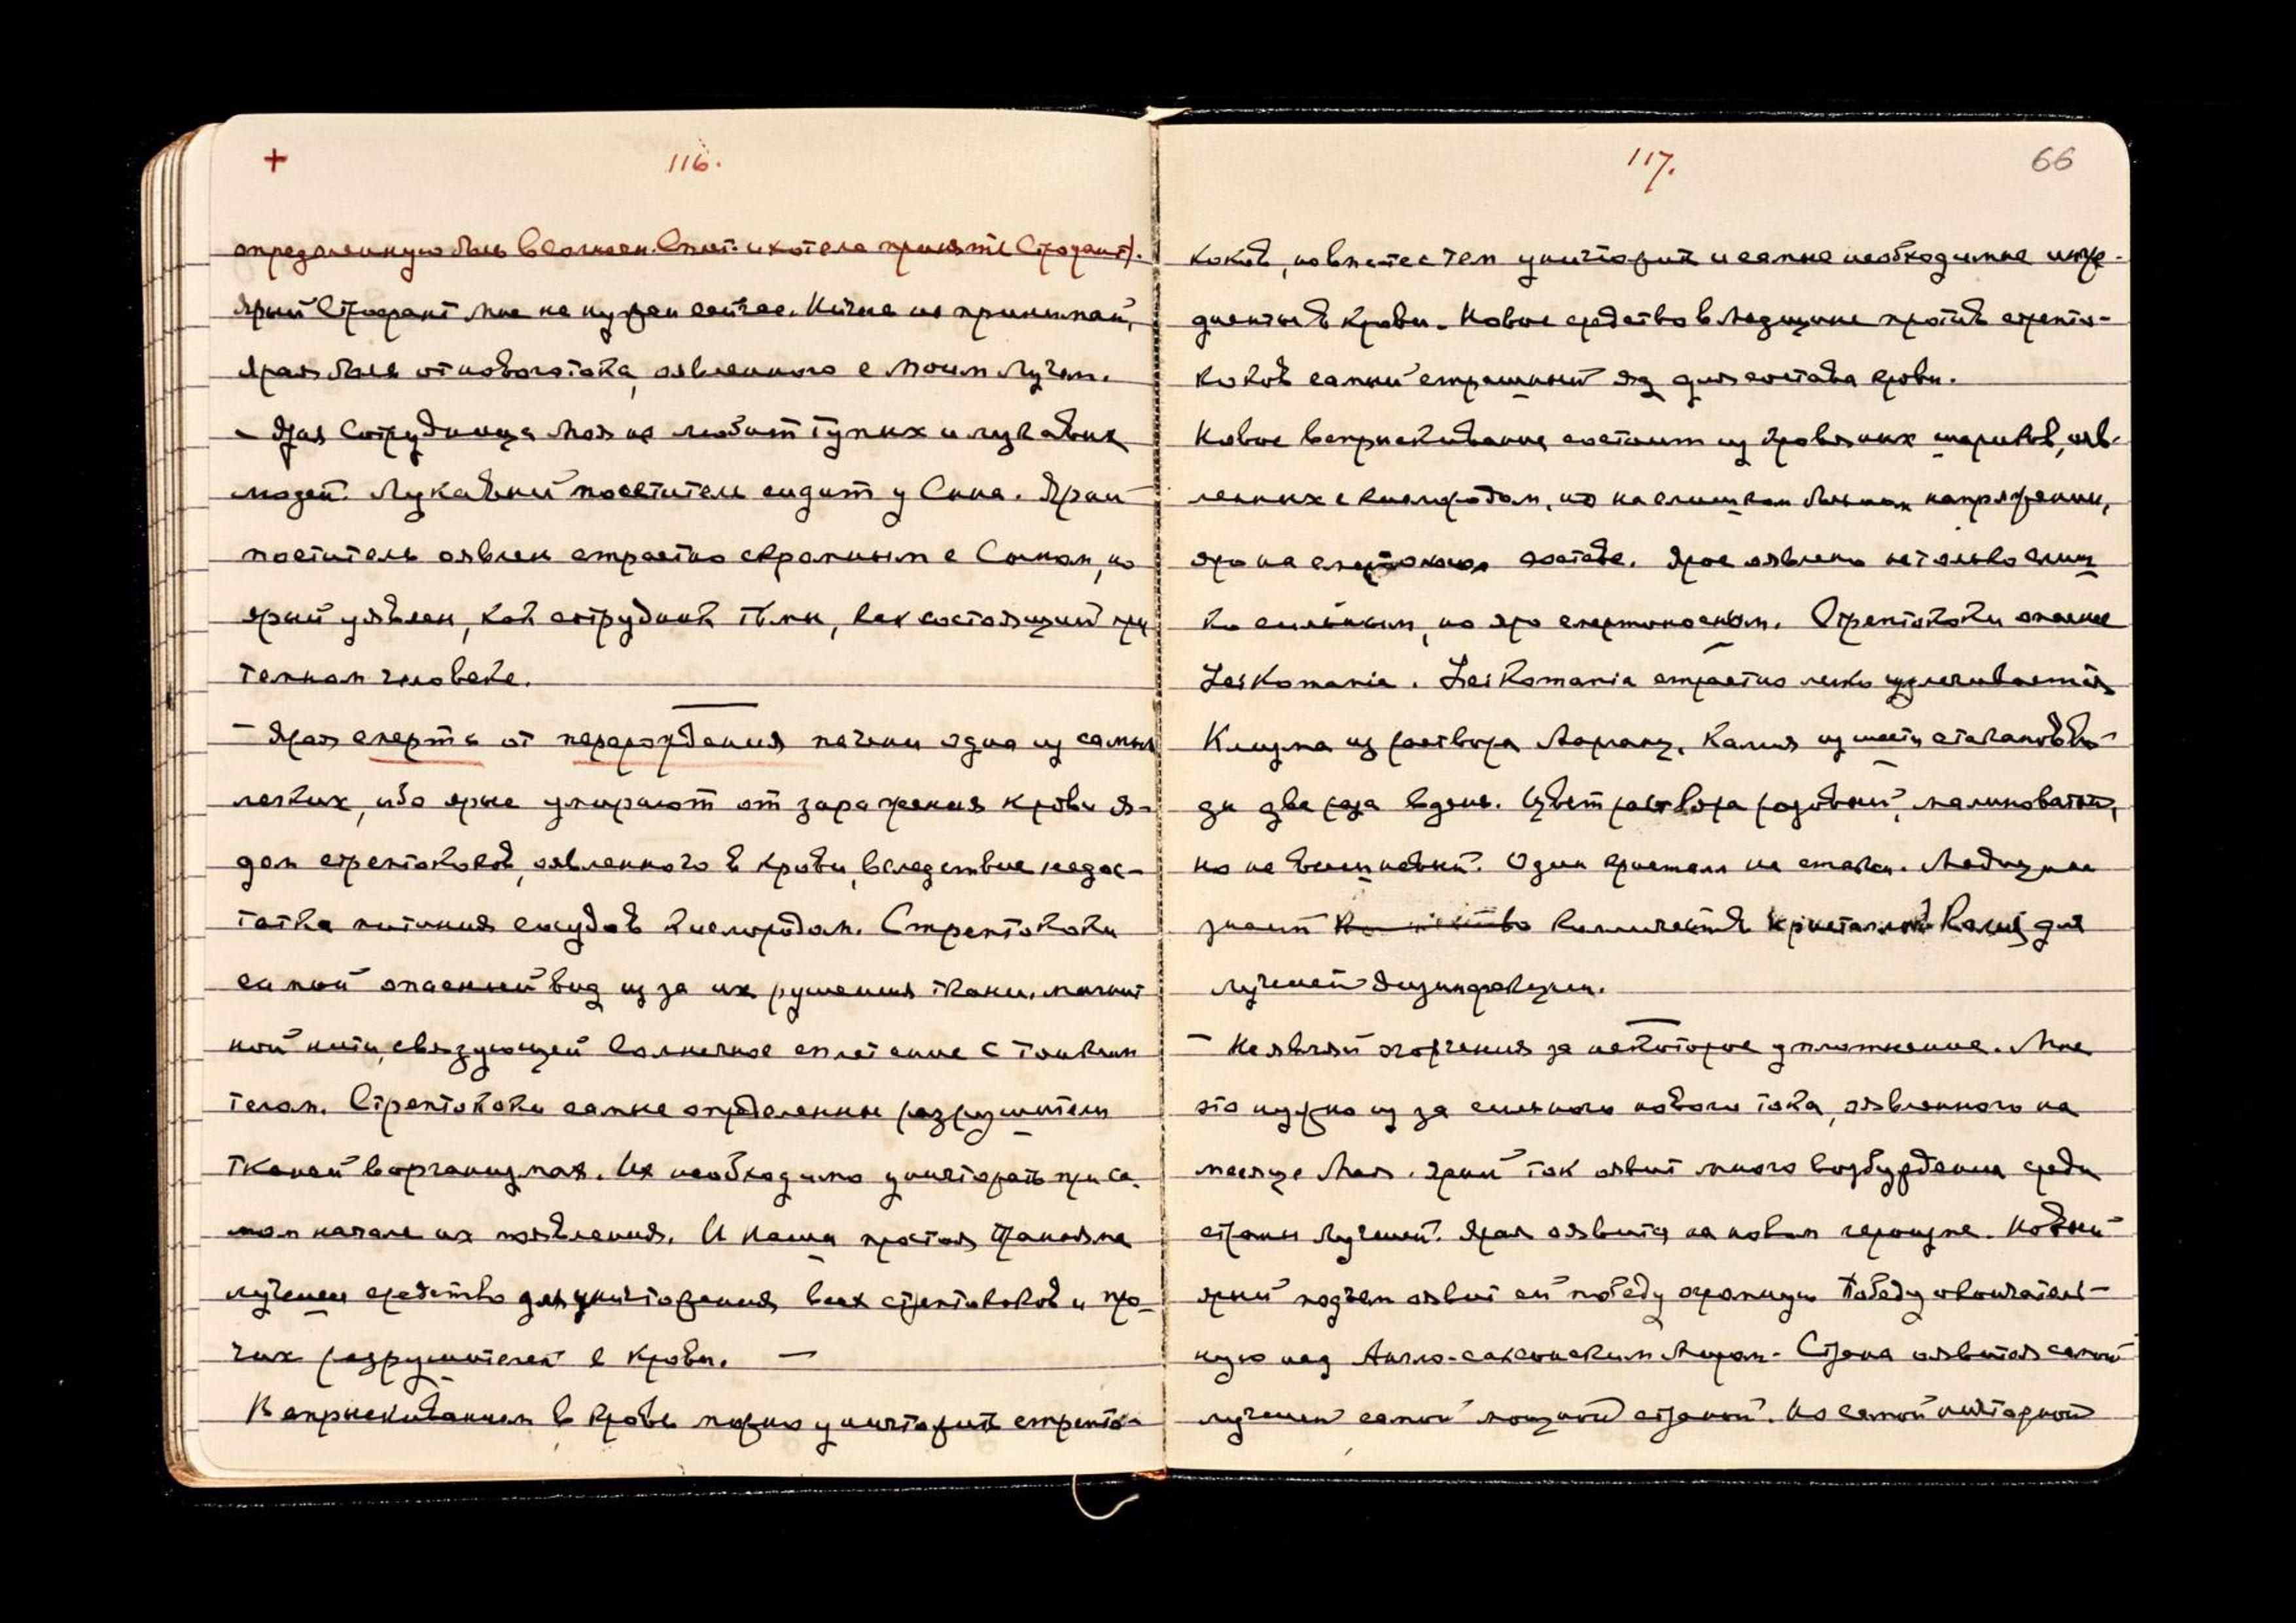 +
116.
определенную боль в солнеч. сплет. и хотела принять Строфант).
Ярый Строфант мне не нужен сейчас. Ничего не принимай,
Ярая боль от нового тока, явленного с Моим Лучом.
– Ярая Сотрудница Моя не любит тупых и лукавых
людей. Лукавый посетитель сидит у Сына. Ярый
посетитель оявлен страстно скромным с Сыном, но
ярый уявлен, как сотрудник тьмы, как состоящий при
темном человеке.
– Ярая смерть от перерождения печени одна из самых
легких, ибо ярые умирают от заражения крови я-
дом стрептококов, оявленного в крови, вследствие недос-
татка питания сосудов кислородом. Стрептококи
самый опасный вид из за их рушения ткани, магнит
ной нити, связующей солнечное сплетение с тонким
телом. Стрептококи самые определенные разрушители
тканей в организмах. Их необходимо уничтожать при са-
мом начале их появления. И наша простая
лучшее средство для уничтожения всех стрептококов и про-
чих разрушителей в крови. –
Впрыскиванием в кровь можно уничтожить стрепто-
117.
66
коков, но вместе с тем уничтожить и самые необходимые ингре-
диенты в крови. Новое средство в Медицине против стрепто-
коков самый страшный яд для состава крови.
Новое впрыскивание состоит из кровяных шариков, яв-
ленных с кислородом, но на слишком большом напряжении,
яро на составе. Ярое оявлено не только слиш
ко сильным, но яро смертоносным. Стрептококи опаснее
Leikomania. Leikomania страстно легко излечивается
Клизма из раствора Марганц. Калия из шести стаканов во-
ды два раза в день. Цвет раствора розовый, малиноватый,
но не вишневый. Один кристалл на стакан. Медицина
знает количество кристаллов Калия для
лучшей дизинфекции.
– Не являй огорчения за некоторое уплотнение. Мне
это нужно из за сильного нового тока, оявленного на
месяце Мая. Ярый ток оявит много возбуждения среди
страны Лучшей. Ярая оявится на новом героизме. Новый
ярый подъем оявит ей победу огромную Победу окончатель-
ную над Англо-саксонским Миром. Страна оявится самой
лучшей самой мощной страной. Но самой ничтожной